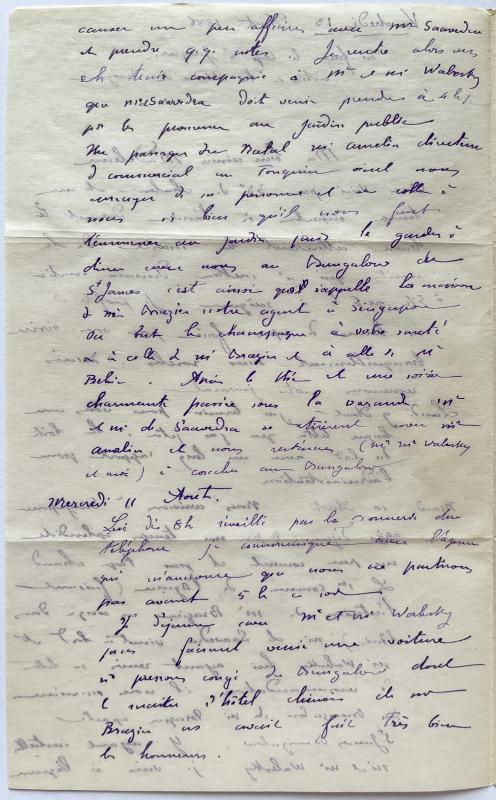 causer un peu affaires avec Mr Saavedra
et prendre qq notes. Je rentre alors vers
4h tenir compagnie à Mme et Mr Walesky
que Mr Saavedra doit venir prendre à 4h½
pr les promener au Jardin public
Un passager du Natal Mr Amelin directeur
d commercial au Tonquin vient nous
de sa personne et se colle à
nous si bien qu'il nous faut
l'emmener au jardin puis le garder à
dîner avec nous au Bungalow de
St James c'est ainsi que s'appelle la maison
d Mr Brazier notre agent à Singapou
On but le champagne à votre santé
& à celle d Mr Brazier et à celle d Mr
Behic. Après le thé et une soirée
charmante passée sous la varandah Mme
et Mr de Saavedra se retirèrent avec Mr
Amelin et nous restâmes (Mr Mme Walesky
et moi) à coucher au Bungalow
Mercredi 11 Août.
Levé dès 6h réveillé par la sonnerie du
téléphone je communique avec l'agence
qui m'annonce que nous ne partirons
pas avant 5h ce soir
Je déjeune avec Mme et Mr Walesky
puis faisant venir une voiture
ns prenons congé du Bungalow dont
le maître d'hôtel chinois de Mr
Brazier ns avait fait très bien
les honneurs.